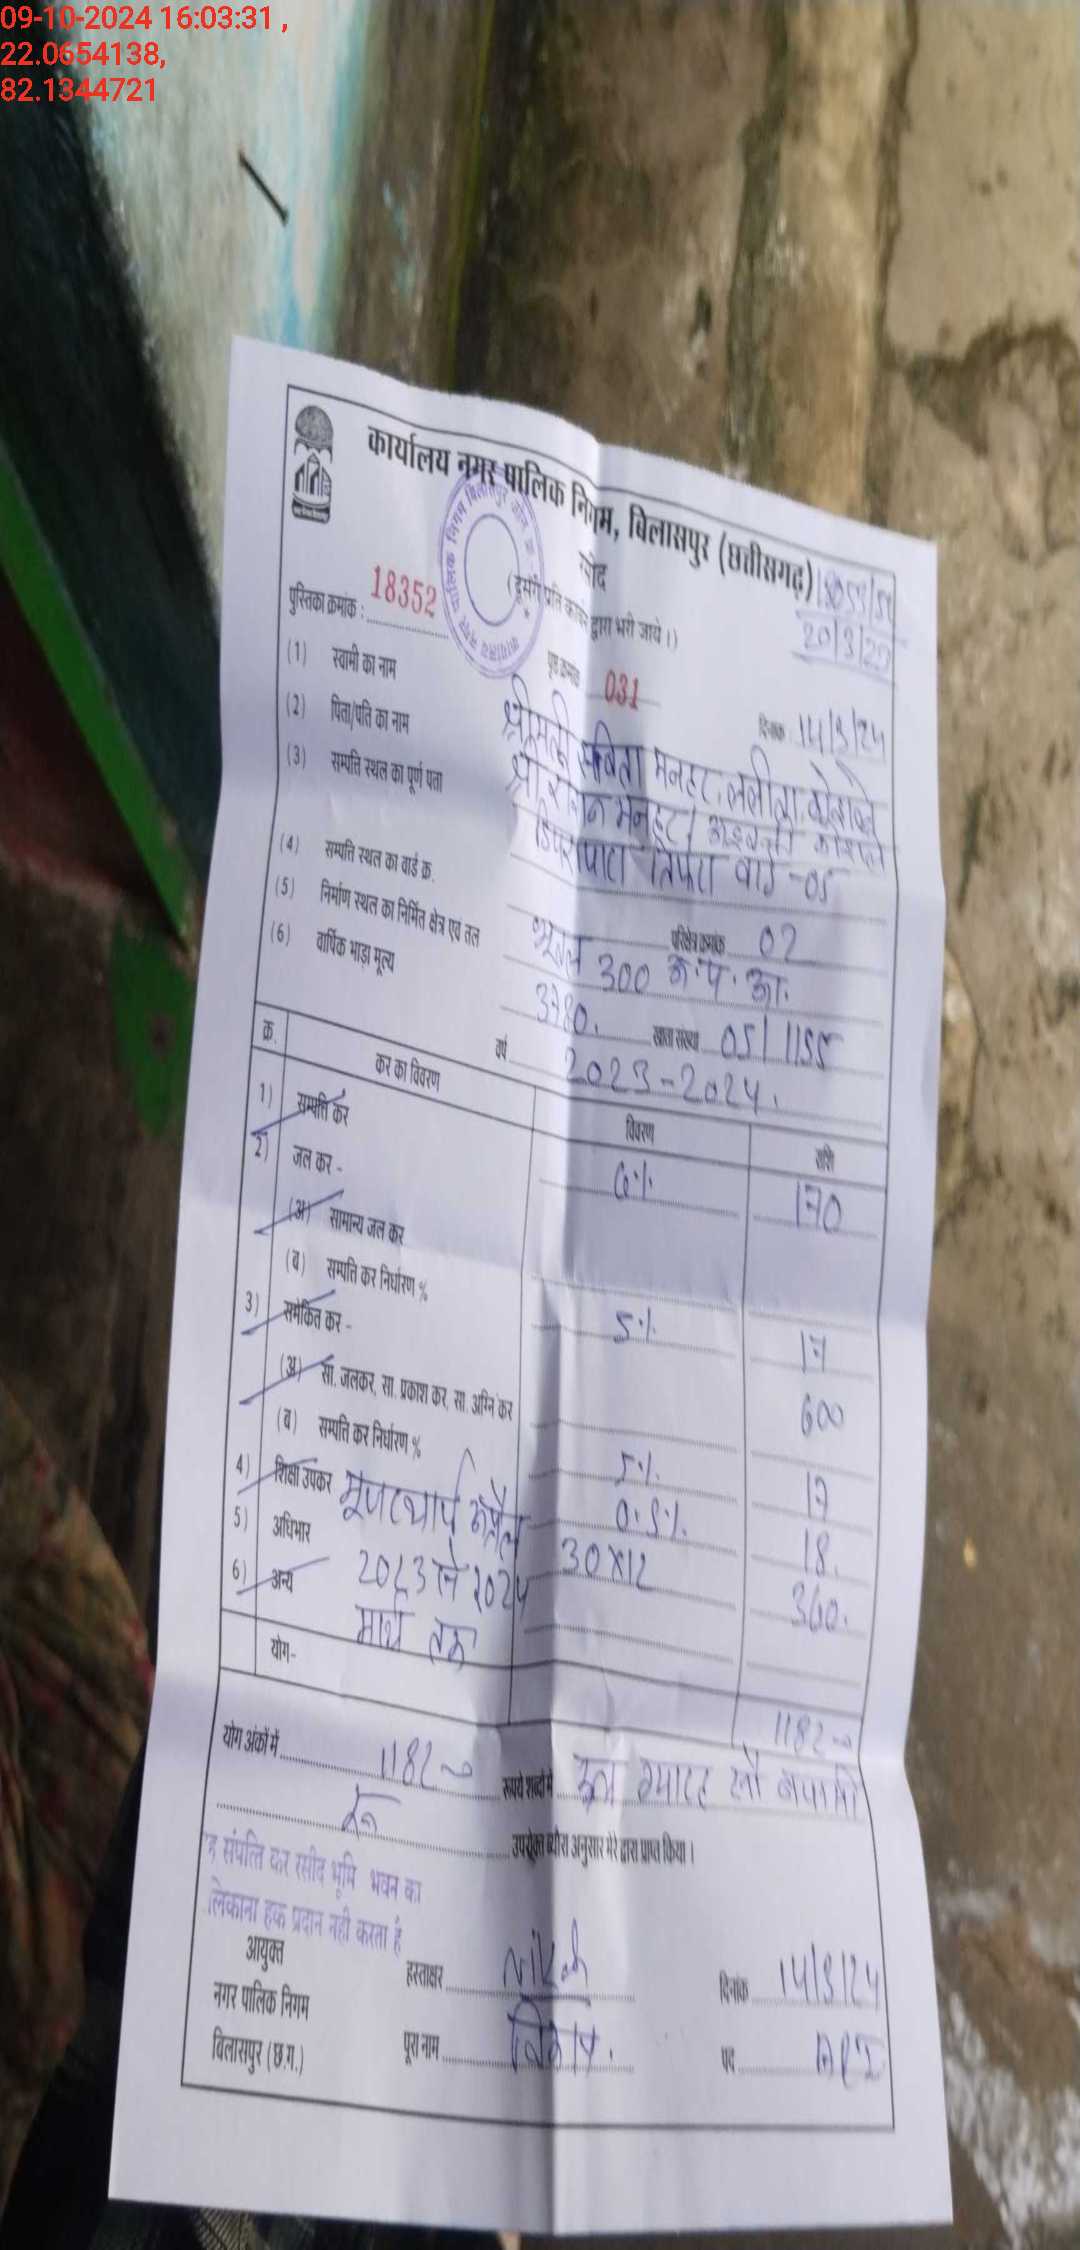 09-10-2024 16:03:31 ,
22.0654138,
82.1344721
कार्यालय नगर पालिक निगम, बिलासपुर (छत्तीसगढ़)
रसीद
(दूसरी प्रति कार्बन द्वारा भरी जाये।)
20/3/20
पुस्तिका क्रमांक : 18352 पृष्ठ क्रमांक 031 दिनांक 14/3/24
(1) स्वामी का नाम श्रीमती सबिता मनहर, ललीता
(2) पिता/पति का नाम श्री मनहर
(3) सम्पत्ति स्थल का पूर्ण पता तिफरा वार्ड -05
(4) सम्पत्ति स्थल का वार्ड क्र. परिक्षेत्र क्रमांक 02
(5) निर्माण स्थल का निर्मित क्षेत्र एवं तल भूतल 300
(6) वार्षिक भाड़ा मूल्य 3780. खाता संख्या 05/1155
वर्ष 2023-2024.
क्र. कर का विवरण विवरण राशि
1) सम्पत्ति कर 6% 170
2) जल कर -
(अ) सामान्य जल कर
(ब) सम्पत्ति कर निर्धारण % 5% 17
3) समेकित कर - 600
(अ) सा. जलकर, सा. प्रकाश कर, सा. अग्नि कर
(ब) सम्पत्ति कर निर्धारण % 5% 17
4) शिक्षा उपकर 0.5% 18.
5) अधिभार 30x12 360.
6) अन्य 2023 से 2024
मार्च तक
योग- 1182
योग अंकों में 1182 रूपये शब्दों में
रू उपर्युक्त ब्यौरा अनुसार मेरे द्वारा प्राप्त किया।
संपत्ति कर रसीद भूमि भवन का
हक प्रदान नही करता है
आयुक्त
नगर पालिक निगम
बिलासपुर (छ.ग.)
हस्ताक्षर दिनांक 14/3/24
पूरा नाम पद ARI